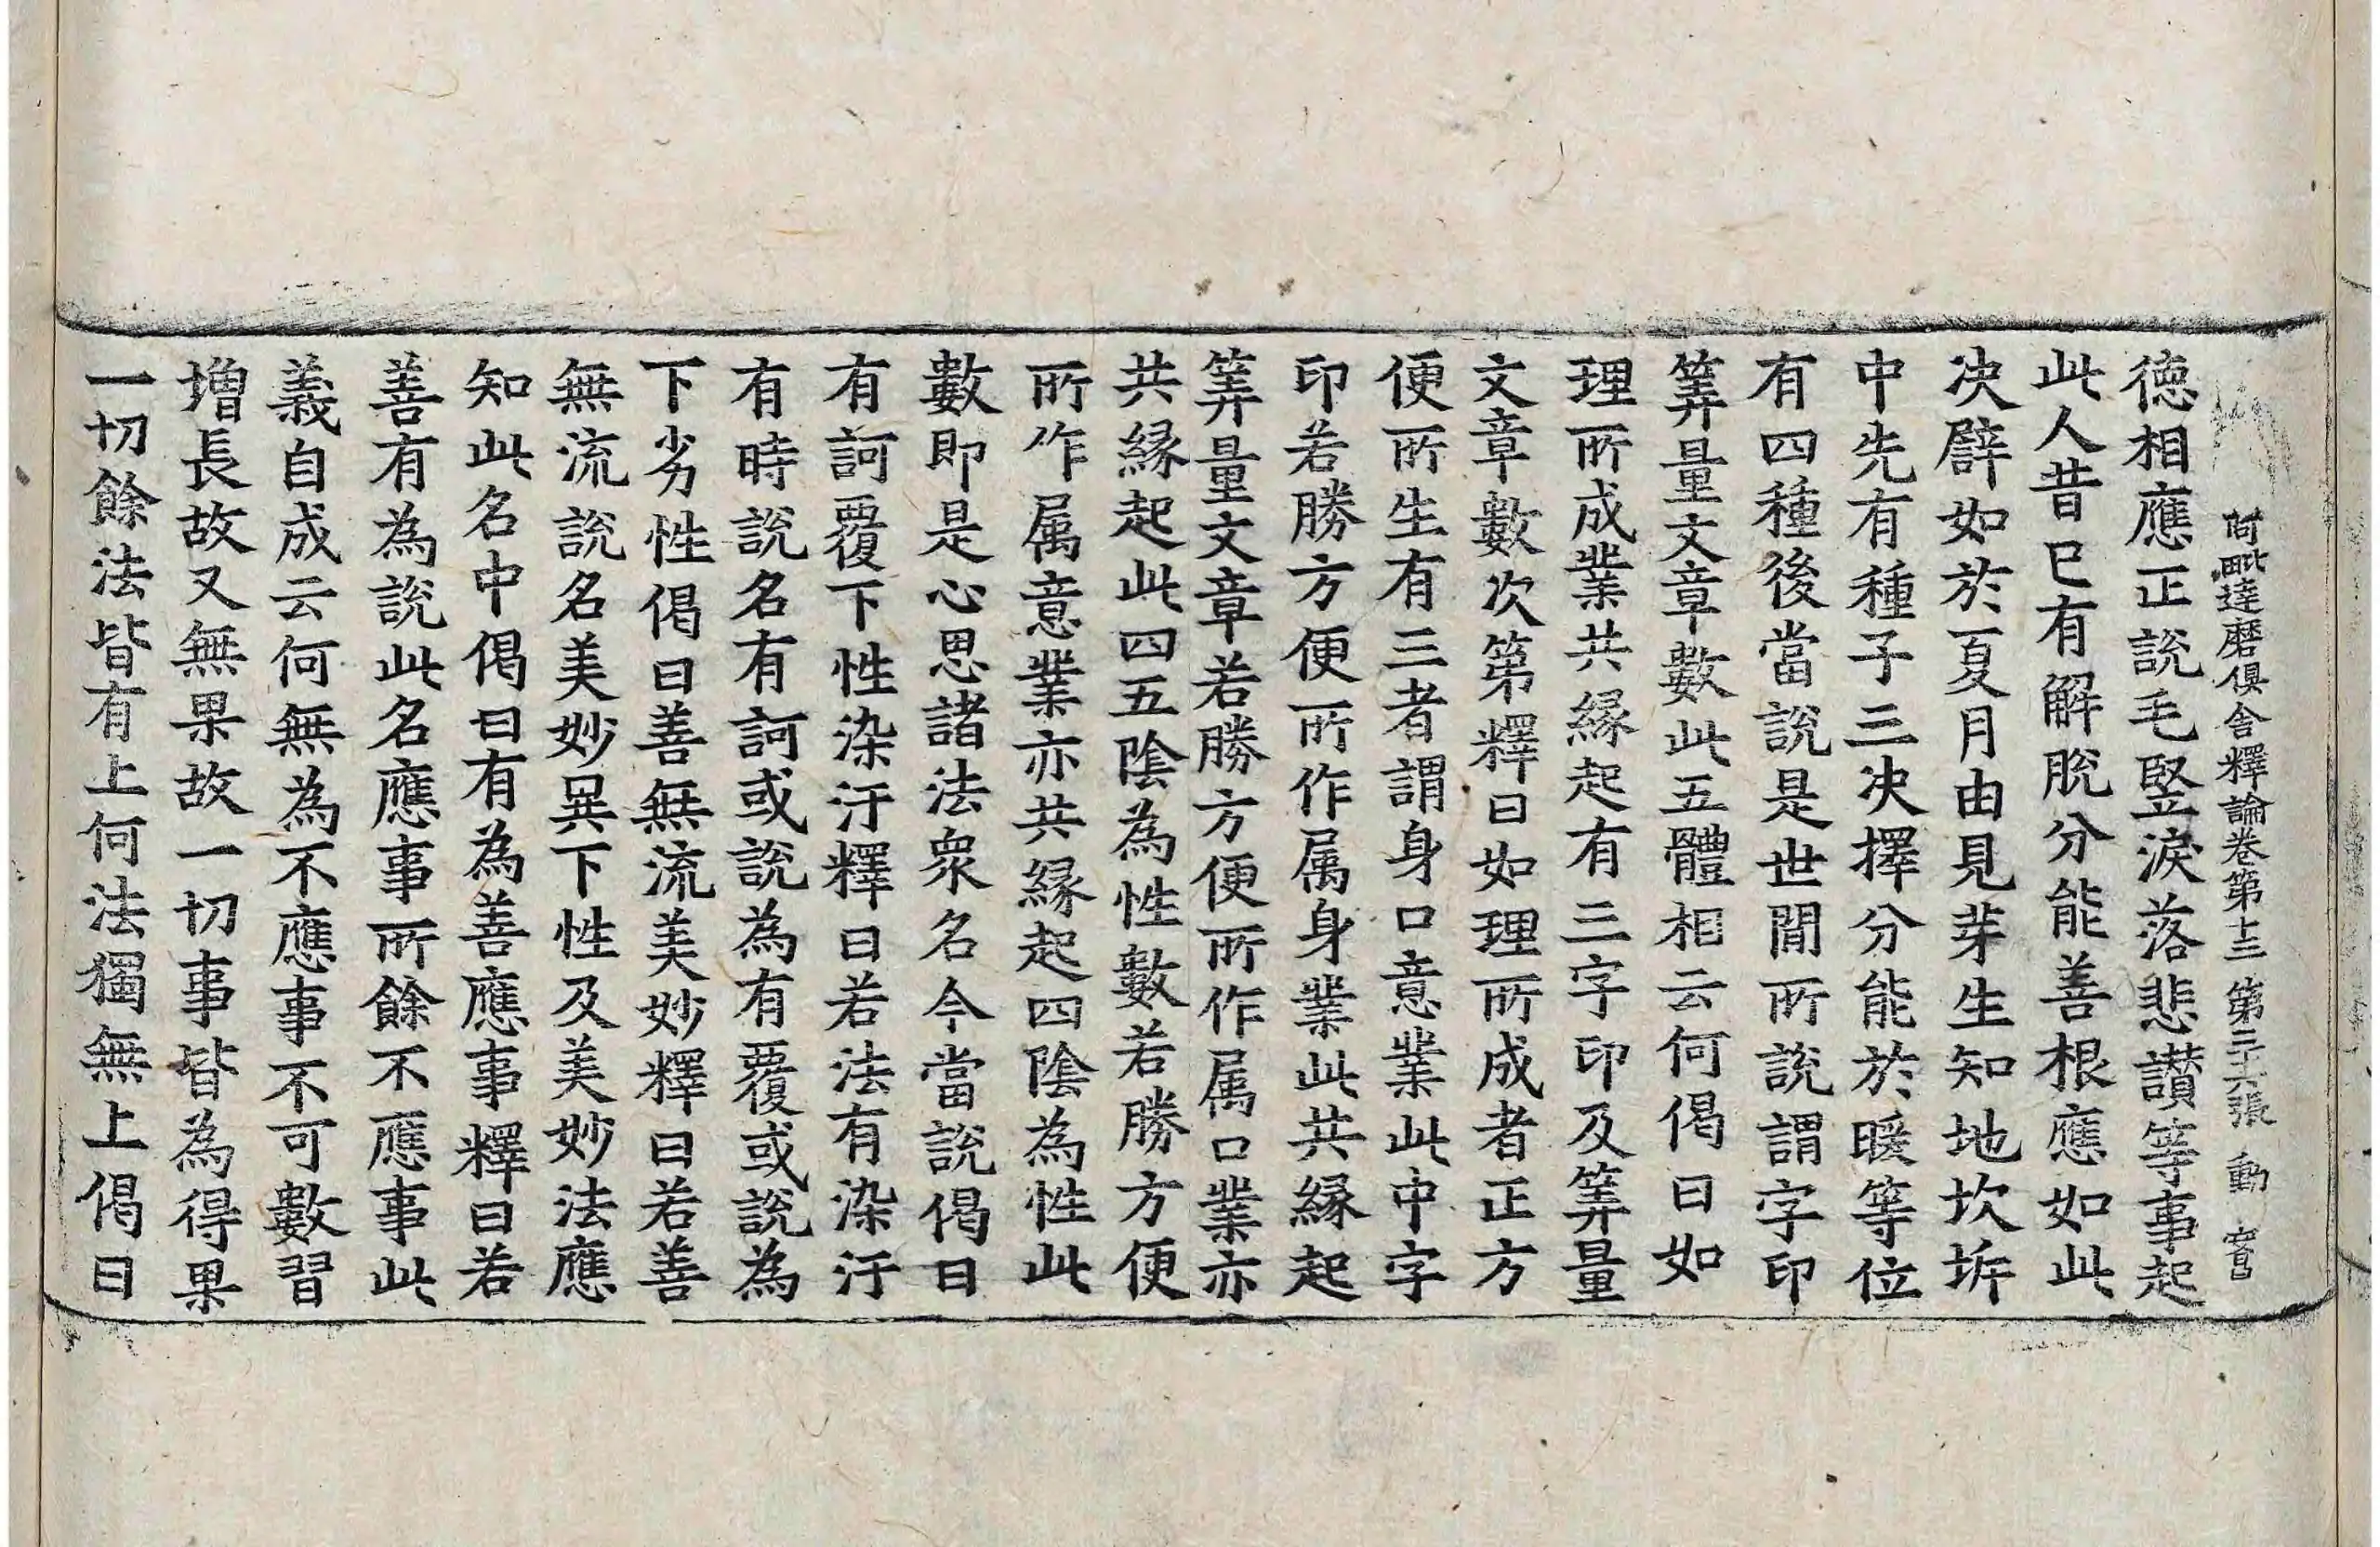 阿毗達磨俱舍釋論卷第十三 第二十六張 動
德相應正說毛竪淚落悲讃等事起
此人昔已有解脫分能善根應如此
决譬如於夏月由見芽生知地坎坼
中先有種子三决擇分能於暖等位
有四種後當說是世間所說謂字印
筭量文章數此五體相云何偈曰如
理所成業共緣起有三字印及筭量
文章數次第釋曰如理所成者正方
便所生有三者謂身口意業此中字
印若勝方便所作属身業此共緣起
筭量文章若勝方便所作属口業亦
共緣起此四五陰為性數若勝方便
所作属意業亦共緣起四陰為性此
數即是心思諸法衆名今當說偈曰
有訶覆下性染汙釋曰若法有染汙
有時說名有訶或說為有覆或說為
下劣性偈曰善無流美妙釋曰若善
無流說名美妙異下性及美妙法應
知此名中偈曰有為善應事釋曰若
善有為說此名應事所餘不應事此
義自成云何無為不應事不可數習
增長故又無果故一切事皆為得果
一切餘法皆有上何法獨無上偈曰